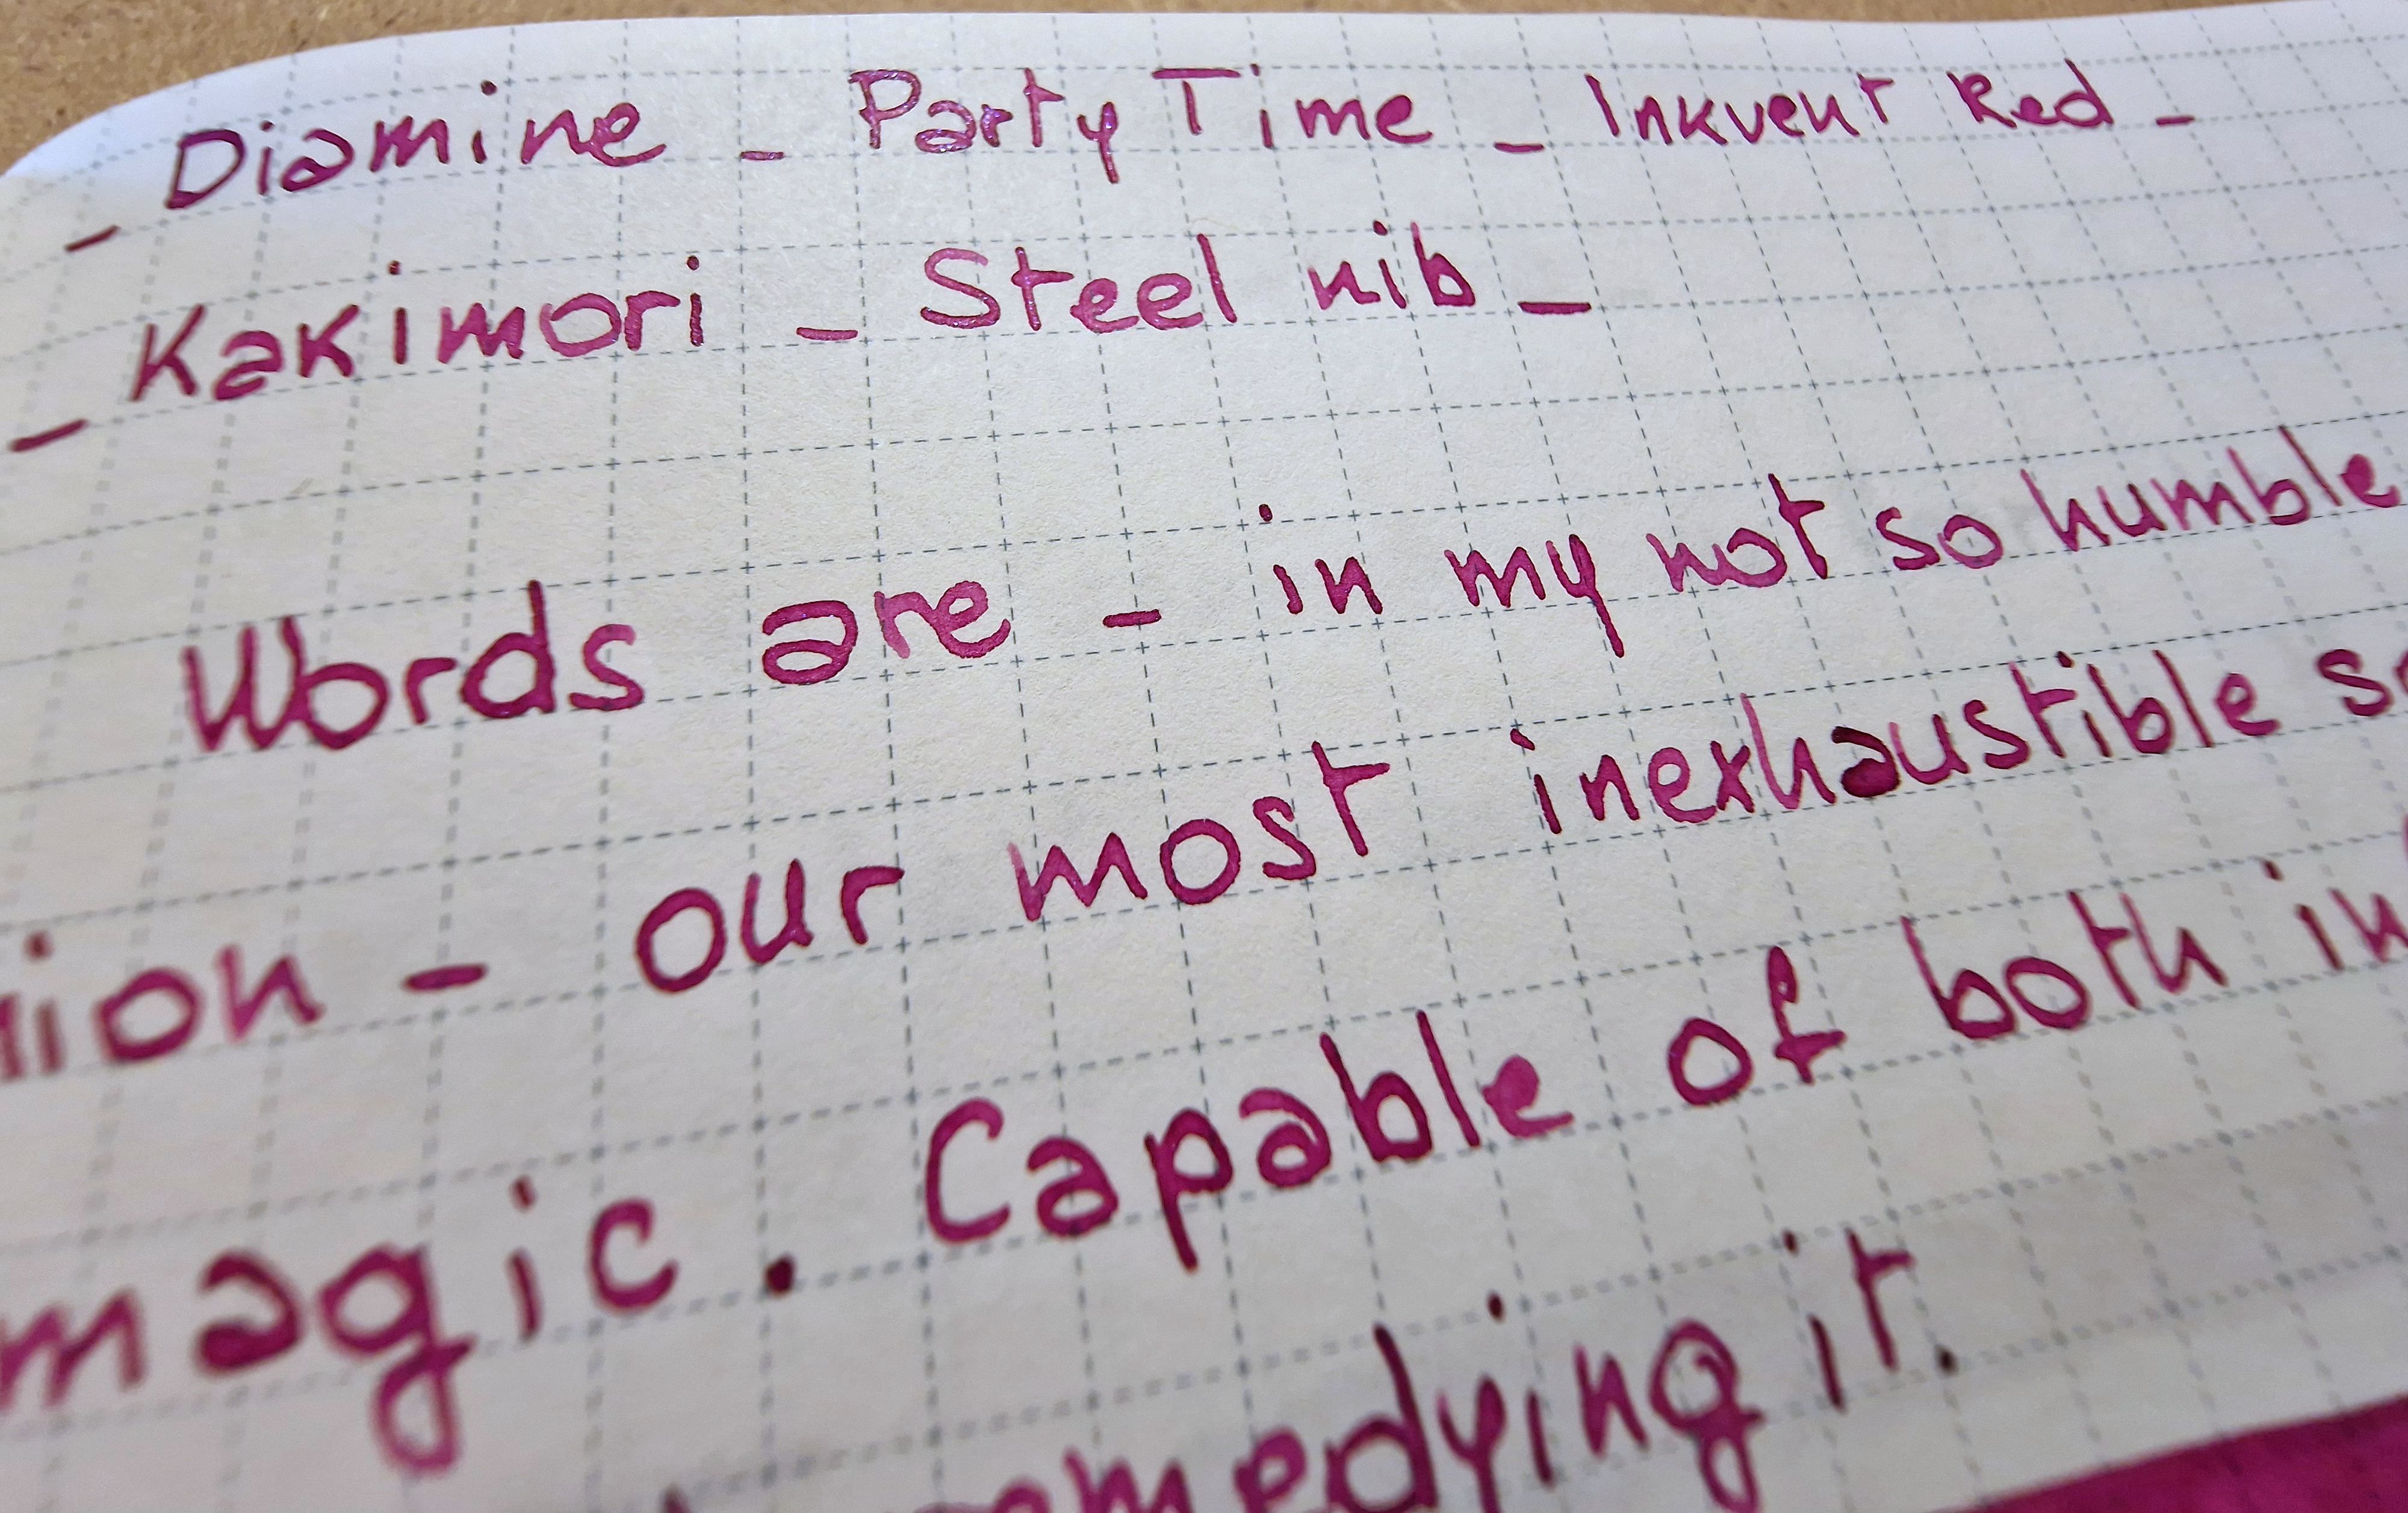 - Diamine - Party Time - Inkvent Red -
- Kakimori - Steel nib -
Words are - in my not so humble
nion - our most inexhaustible so
magic. Capable of both in
remedying it.